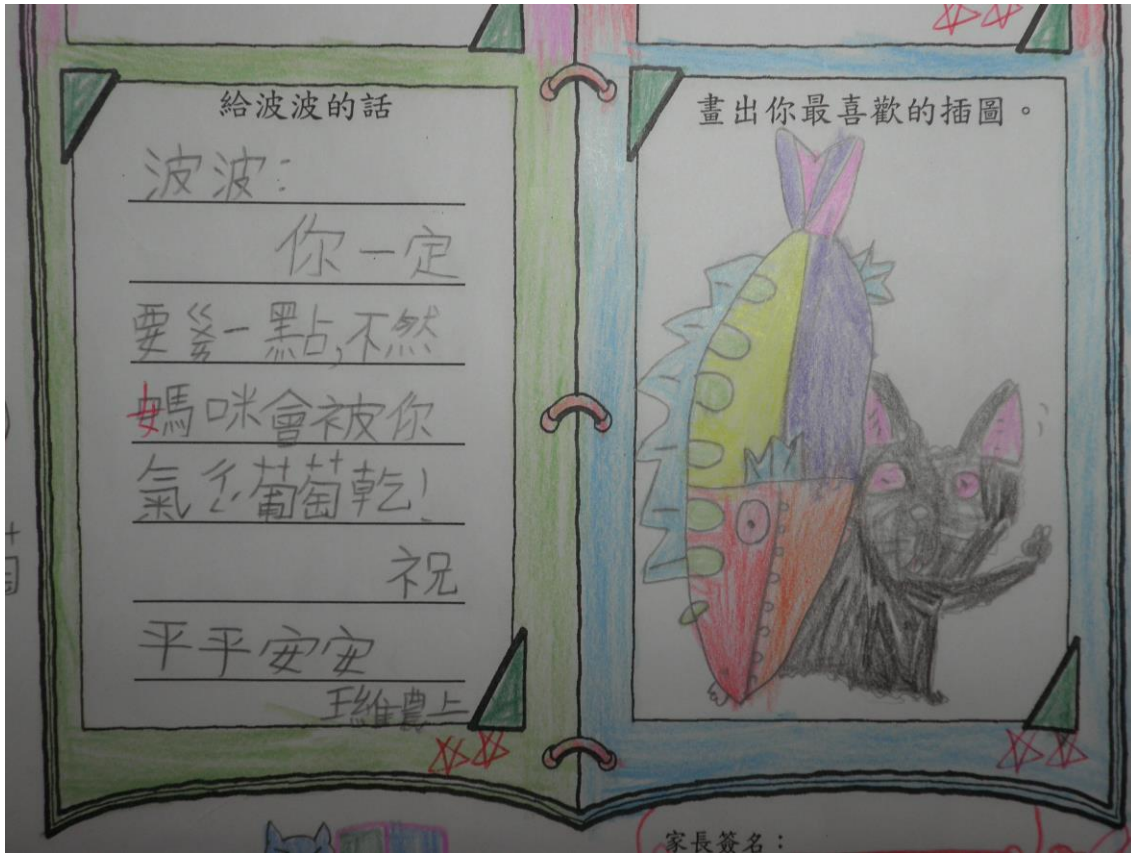 給波波的話
波波：
你一定
要ㄍㄞ一點,不然
媽咪會被你
氣ㄔㄥˊ葡萄乾！
祝
平平安安
王維農上
畫出你最喜歡的插圖。
家長簽名：